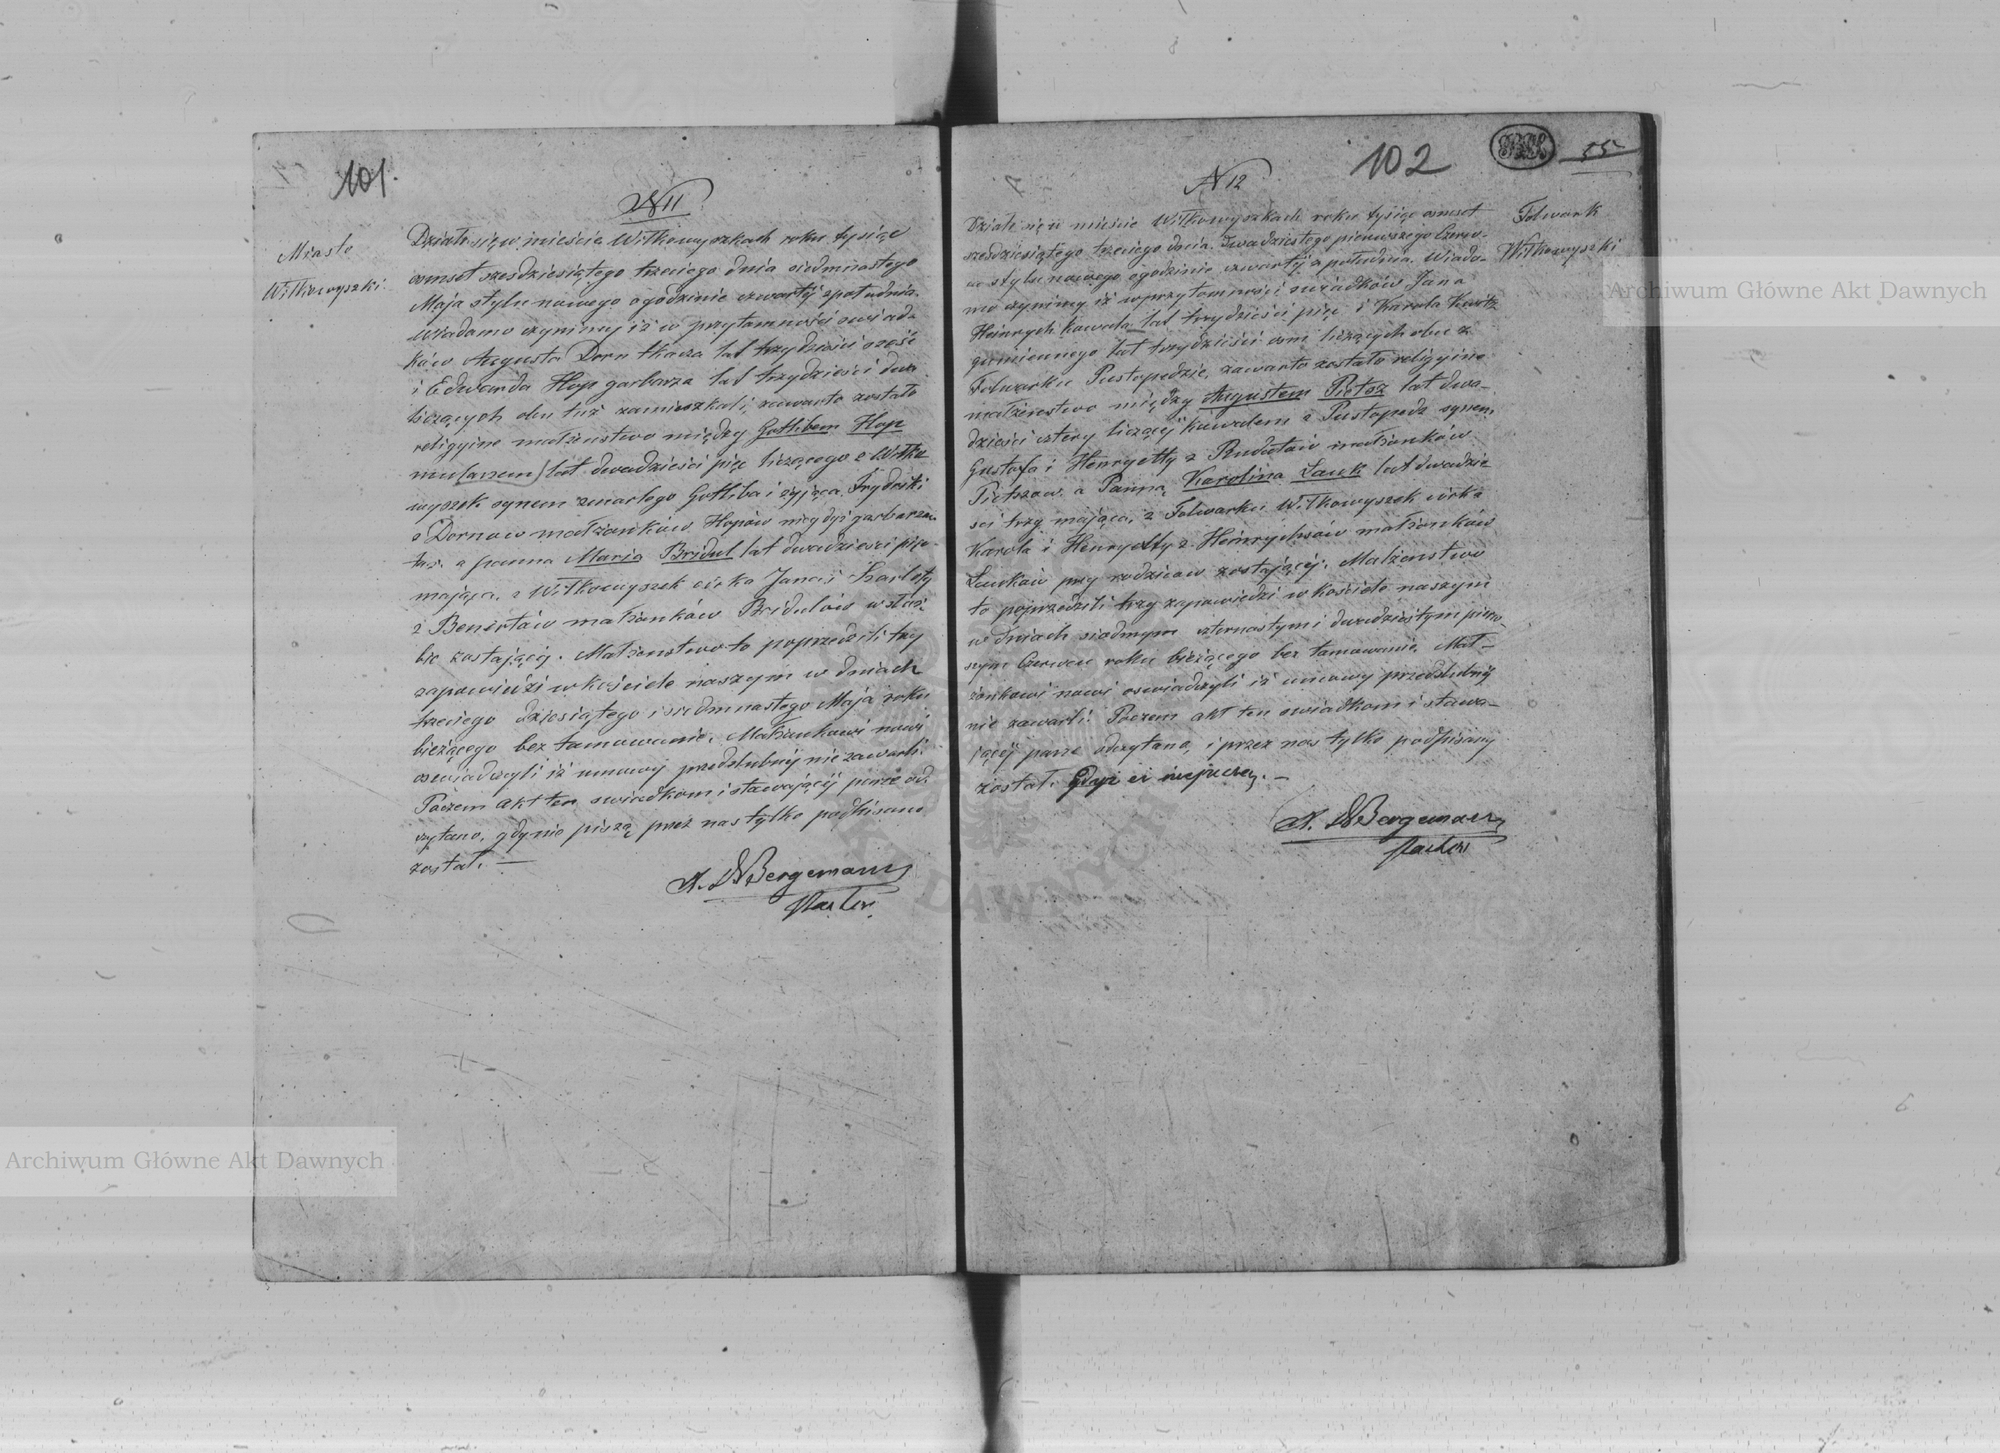 101.
N 11
Miasto
Wiłkowyszki.
Działo się w mieście Wiłkowyszkach roku tysiąc
ośmset sześdziesiątego trzeciego dnia siedmnastego
Maja stylu nowego o godzinie czwartéj z południa.
Wiadomo czynimy iż w przytomności świad-
ków Augusta Dorn tkacza lat trzydzieści sześć
i Edwarda Hop garbarza lat trzydzieści dwa
liczących obu tuż zamieszkali, zawarte zostało
religijne małżeństwo między Gotlibem Hop
mularzem lat dwadzieścia pięć liczącego z Wiłko
wyszek synem zmarłego Gotliba i żyjącą Frydriki
z Dornów małżonków Hopów niegdyś garbarza
tuż, a panna Maria Bridul lat dwadzieścia pięć
mająca, z Wiłkowyszek córka Jana i Szarloty
z Benertów małżonków Bridulów w służ
bie zostającéj. Małżeństwo to poprzedzili trzy
zapowiedzi w kościele naszym w dniach
trzeciego dziesiątego i siedmnastego Maja roku
bieżącego bez tamowania. Małżonkowi nowi
oświadczyli iż umowy przedślubnéj nie zawarli.
Poczem akt ten świadkom i stawającéj parze od-
czytano, gdy nie piszą przez nas tylko podpisane
został. —
A. W Bergemann
Pastor.
102
55
N 12
Folwark
Wiłkowyszki
Działo się w mieście Wiłkowyszkach roku tysiąc ośmset
sześdziesiątego trzeciego dnia dwudziestego pierwszego Czerw-
ca stylu nowego o godzinie czwartéj z południa. Wiado-
mo czynimy iż w przytomności świadków Jana
Heinrych kowala lat trzydzieści pięć i Karola
gumiennego lat trzydzieści ośm liczących obu z
Folwarku Pustopedzie, zawarto zostało religijne
małżeństwo między Augustem Pietsz lat dwa-
dzieścia cztery liczącéj kawalem z Pustopedz synem
Gustafa i Henryetty z małżonków
Pietszow, a Panną Karolina Lauk lat dwadzie
ścia trzy mająca, z Folwarku Wiłkowyszek córka
Karola i Henryetty z Heinrychsów małżonków
Lauków przy rodzicow zostającéj. Małżeństwo
to poprzedzili trzy zapowiedzi w kościele naszym
w dniach siódmym czternastym i dwudziestym pierw-
szym Czerwca roku bieżącego bez tamowania. Mał-
żonkowi nowi oświadczyli iż umowy przedślubnéj
nie zawarli. Poczem akt ten świadkom i stawa-
jącéj parze odczytano, i przez nas tylko podpisany
został. Gdyż ci niepiszą. —
A. W Bergemann
Pastor
Archiwum Główne Akt Dawnych
Archiwum Główne Akt Dawnych